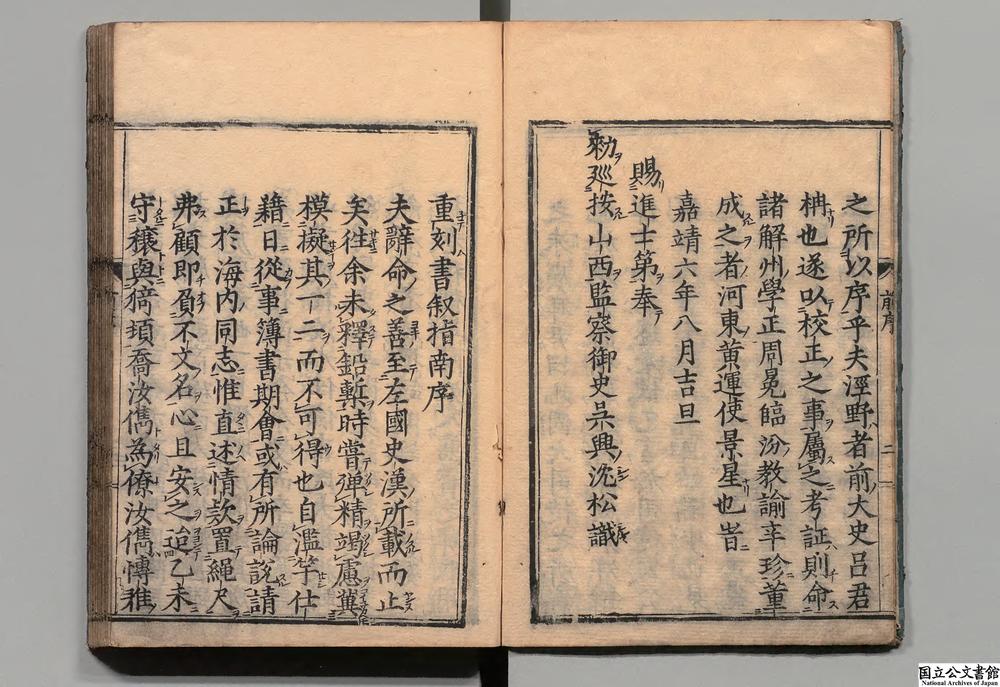 之所以序乎夫涇野者前大史呂君
柟也遂以校正之事屬之考証則命
諸解州學正周冕臨汾教諭辛珍董
成之者河東黄運使景星也旹
嘉靖六年八月吉旦
賜進士第奉
勑廵按山西監察御史吳興沈松識
前序
二
重刻書叙指南序
夫辭命之善至左國史漢所載而止
矣徃余未釋鉛槧時嘗弾精竭慮冀
模擬其一二而不可得也自濫竽仕
籍日從事簿書期會或有所論說請
正於海内同志惟直述情欵置繩尺
弗顧即負不文名心且安之迨乙未
守穣與猗頊喬汝儁為僚汝儁慱雅
国立公文書館
National Archives of Japan